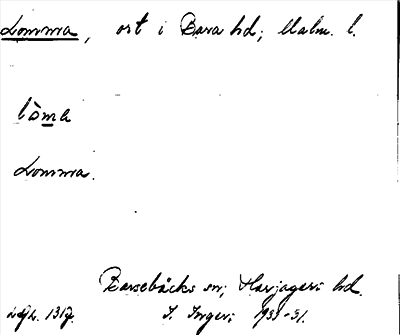 Lomma, ort i Bara hd; Malm. l.
lòma
Lomma.
Barsebäcks sn; Harjagers hd.
I. Ingers 1931-31.